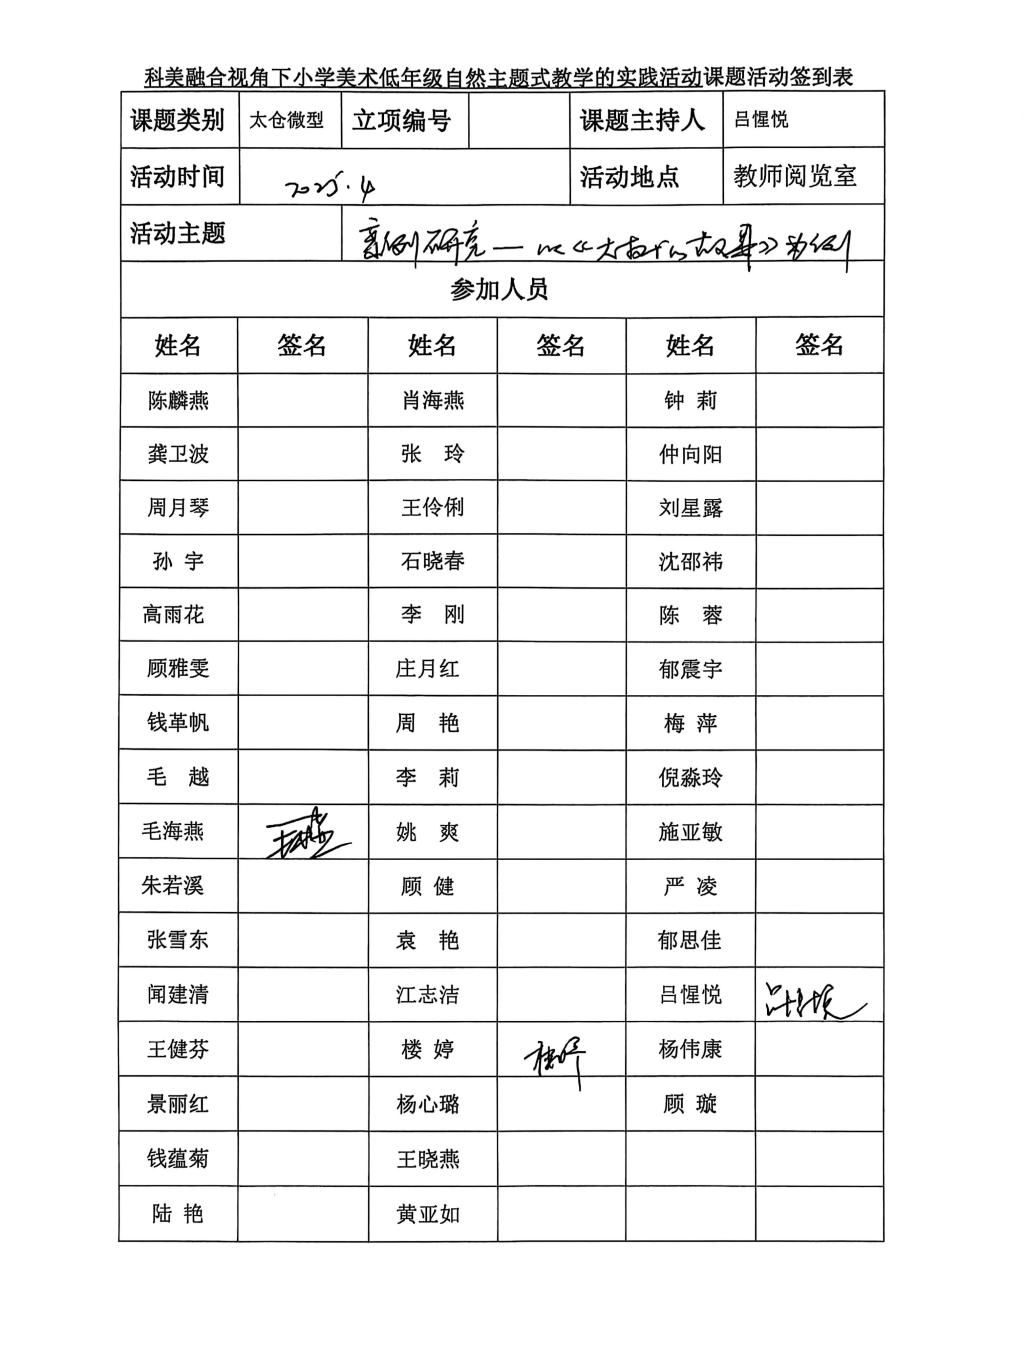 科美融合视角下小学美术低年级自然主题式教学的实践活动课题活动签到表
课题类别 太仓微型 立项编号 课题主持人 吕惺悦
活动时间 2025.4 活动地点 教师阅览室
活动主题 案例研究—以《大树的故事》为例
参加人员
姓名 签名 姓名 签名 姓名 签名
陈麟燕 肖海燕 钟 莉
龚卫波 张 玲 仲向阳
周月琴 王伶俐 刘星露
孙 宇 石晓春 沈邵祎
高雨花 李 刚 陈 蓉
顾雅雯 庄月红 郁震宇
钱革帆 周 艳 梅 萍
毛 越 李 莉 倪淼玲
毛海燕 毛海燕 姚 爽 施亚敏
朱若溪 顾 健 严 凌
张雪东 袁 艳 郁思佳
闻建清 江志洁 吕惺悦 吕惺悦
王健芬 楼 婷 楼婷 杨伟康
景丽红 杨心璐 顾 璇
钱蕴菊 王晓燕
陆 艳 黄亚如